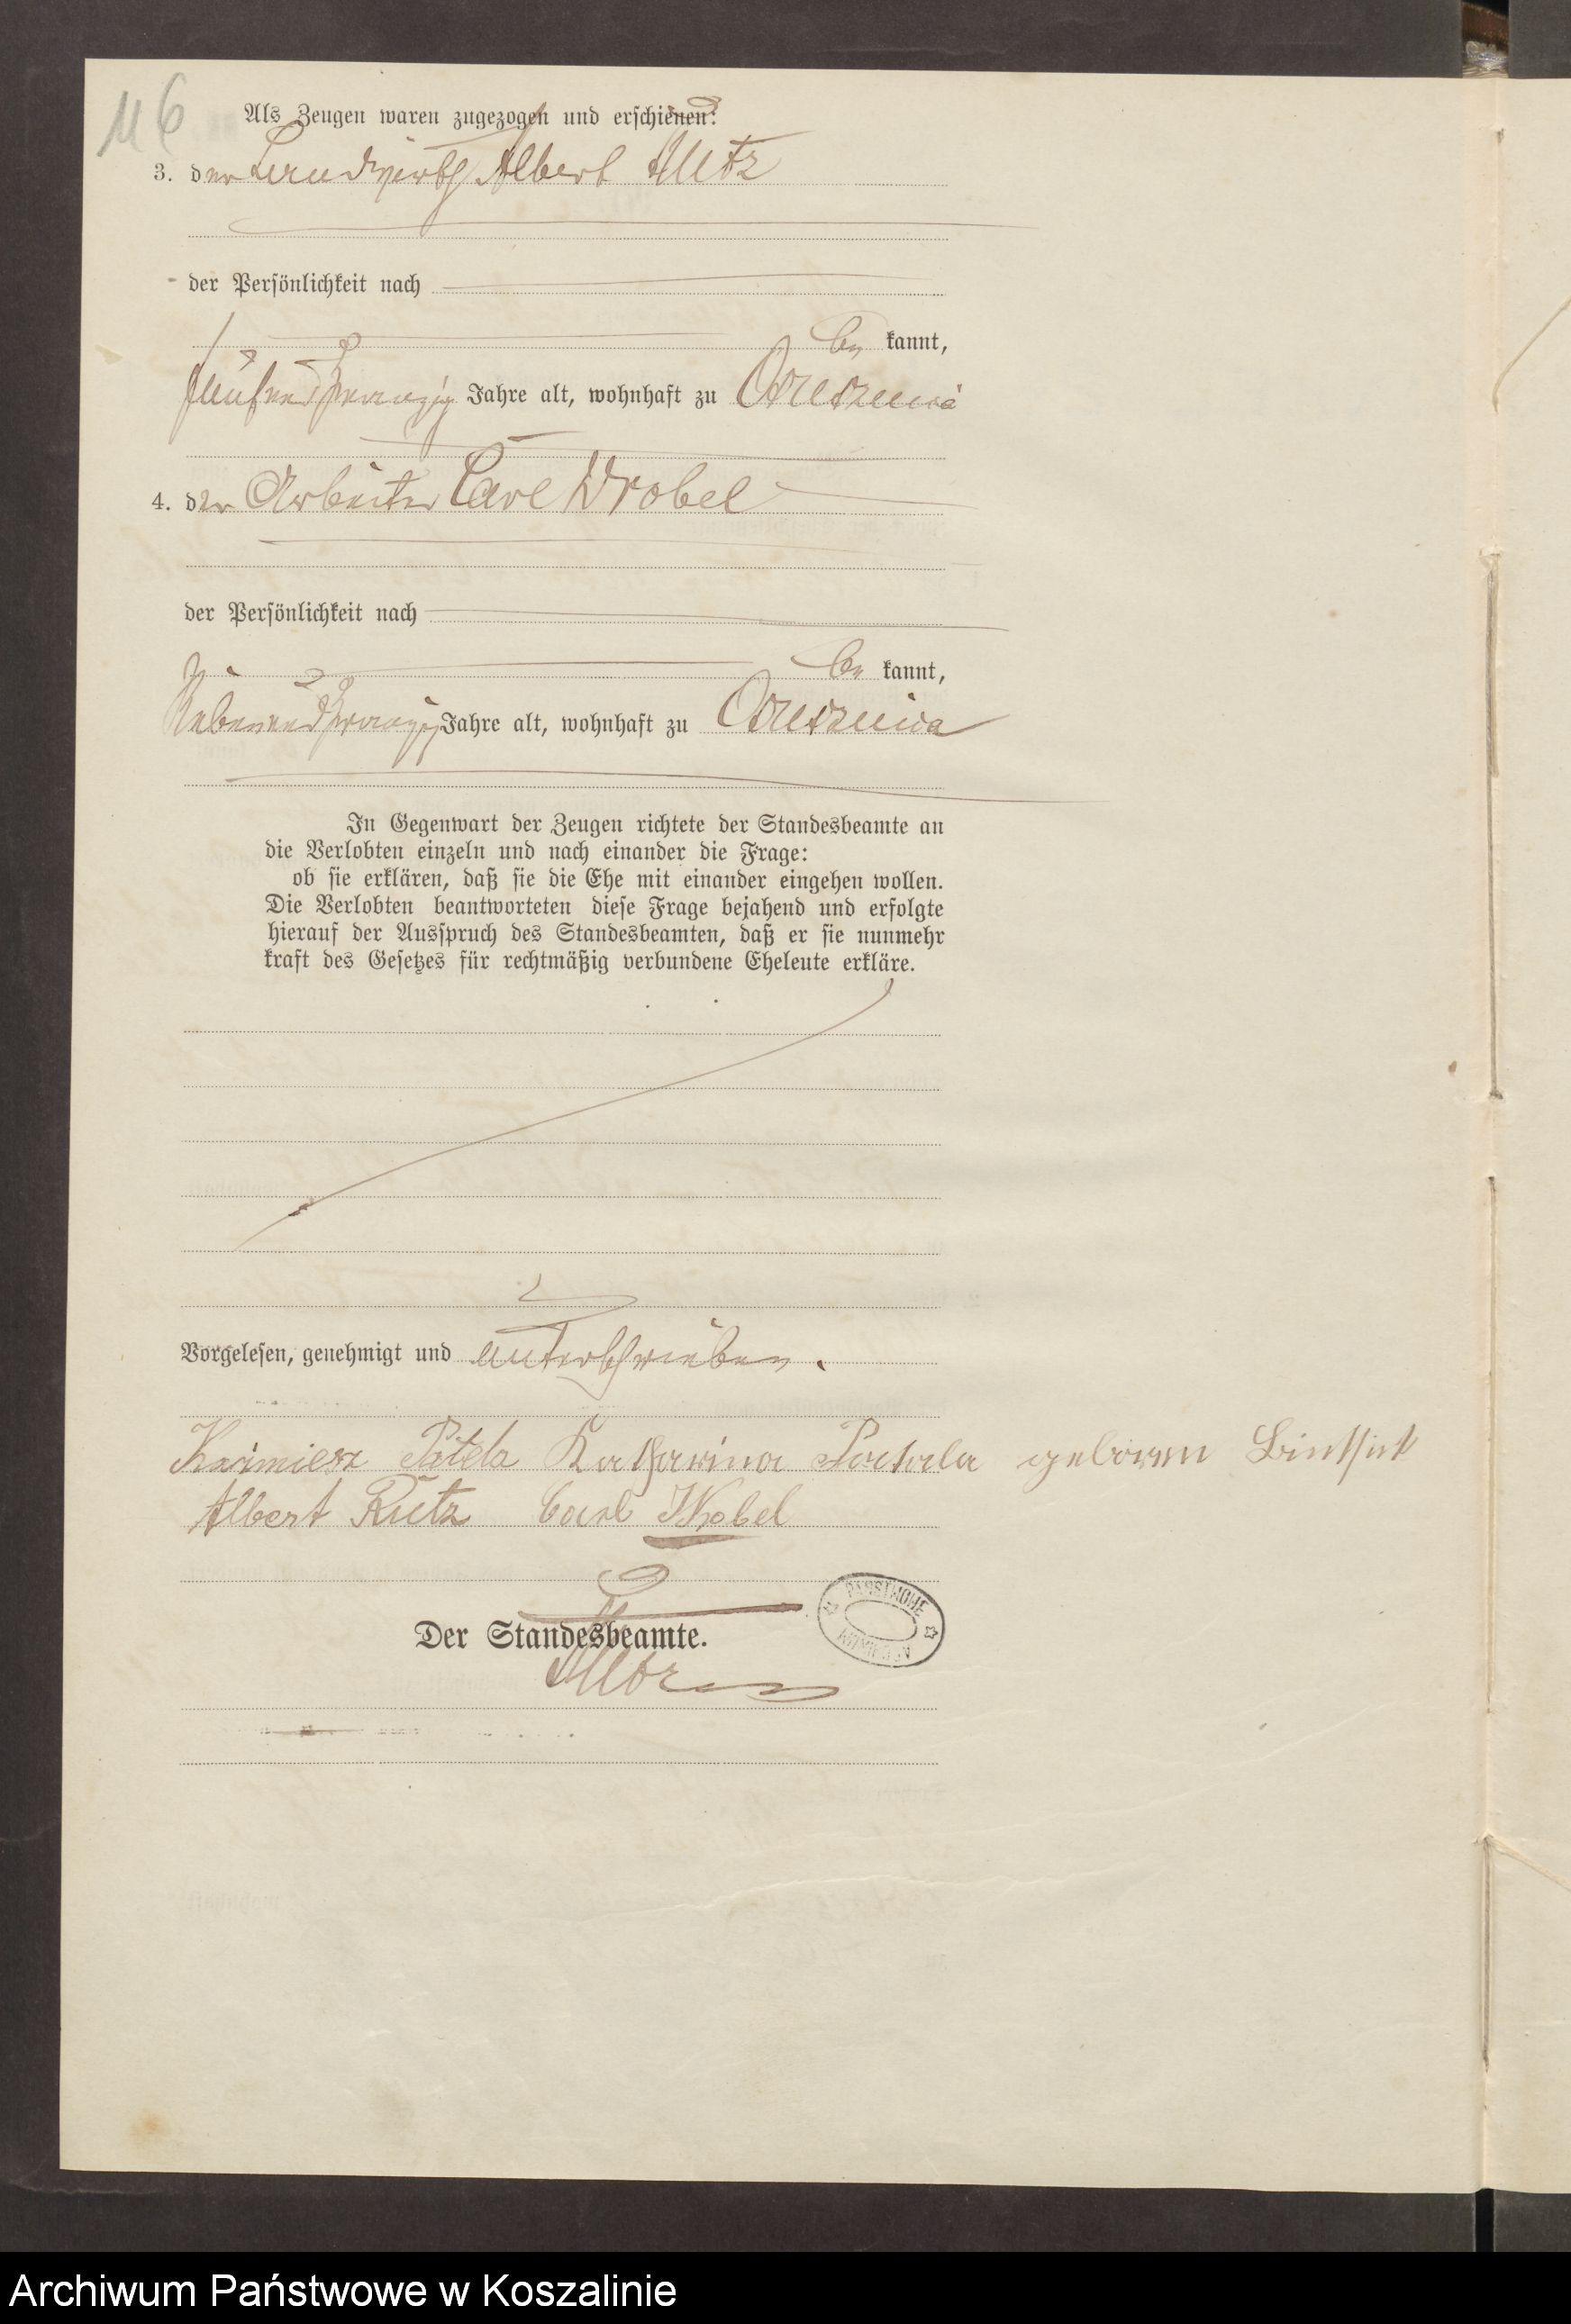 116
Als Zeugen waren zugezogen und erschienen:
3. der Landwirth Albert Rutz
der Persönlichkeit nach
be kannt,
fünfundzwanzig Jahre alt, wohnhaft zu
4. der Arbeiter Carl Wrobel
der Persönlichkeit nach
be kannt,
siebenundzwanzig Jahre alt, wohnhaft zu
In Gegenwart der Zeugen richtete der Standesbeamte an
die Verlobten einzeln und nach einander die Frage:
ob sie erklären, daß sie die Ehe mit einander eingehen wollen.
Die Verlobten beantworteten diese Frage bejahend und erfolgte
hierauf der Ausspruch des Standesbeamten, daß er sie nunmehr
kraft des Gesetzes für rechtmäßig verbundene Eheleute erkläre.
Vorgelesen, genehmigt und unterschrieben.
Kazimierz Katharina geboren
Albert Rutz Carl Wrobel
Der Standesbeamte.
Archiwum Państwowe w Koszalinie